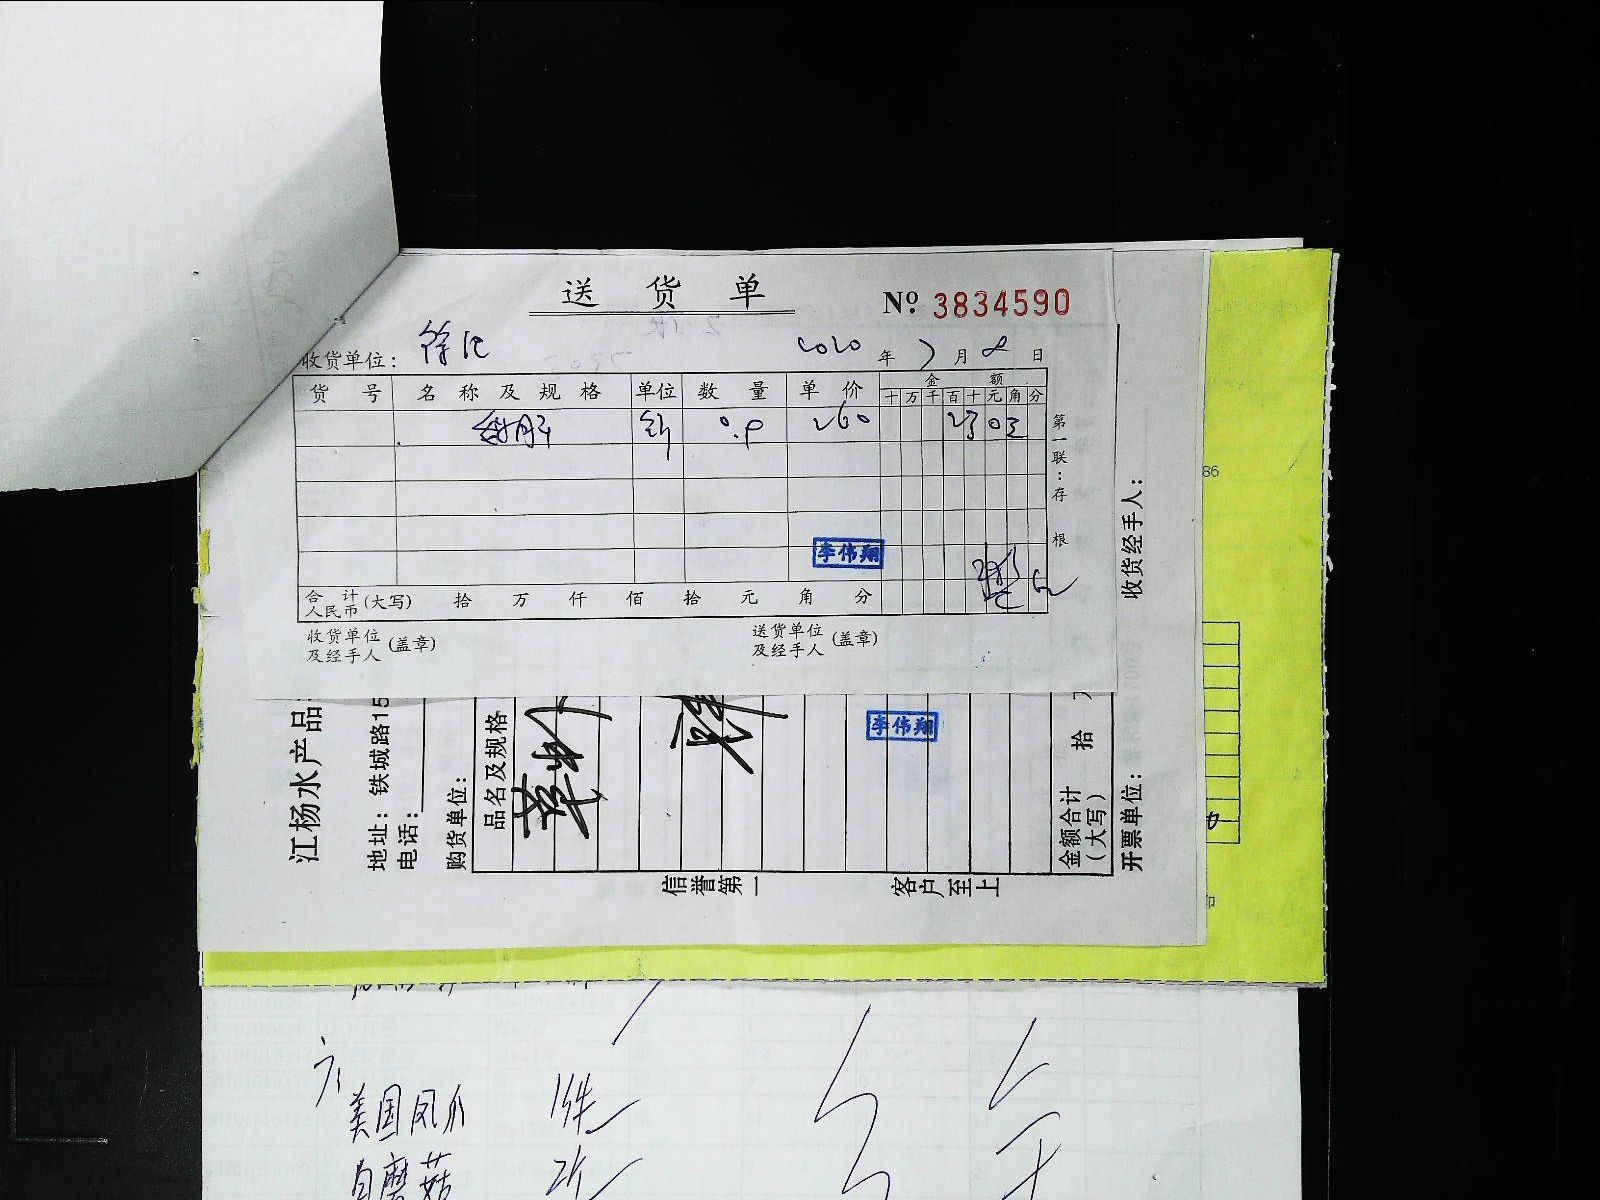 送 货 单
№ 3834590
收货单位: 徐记 2020 年 7 月 8 日
货 号 名 称 及 规 格 单位 数 量 单 价 金 额
十 万 千 百 十 元 角 分
斤 260
李伟翔
合 计
人民币 (大写) 拾 万 仟 佰 拾 元 角 分
收货单位
及经手人 (盖章)
送货单位
及经手人 (盖章)
第一联:存根
收货经手人:
86
江杨水产品
地址: 铁城路15
电话:
购货单位:
品名及规格
李伟翔
金额合计
(大写)
拾
开票单位:
信誉第一 客户至上
美国凤爪 1件
白磨菇 2斤